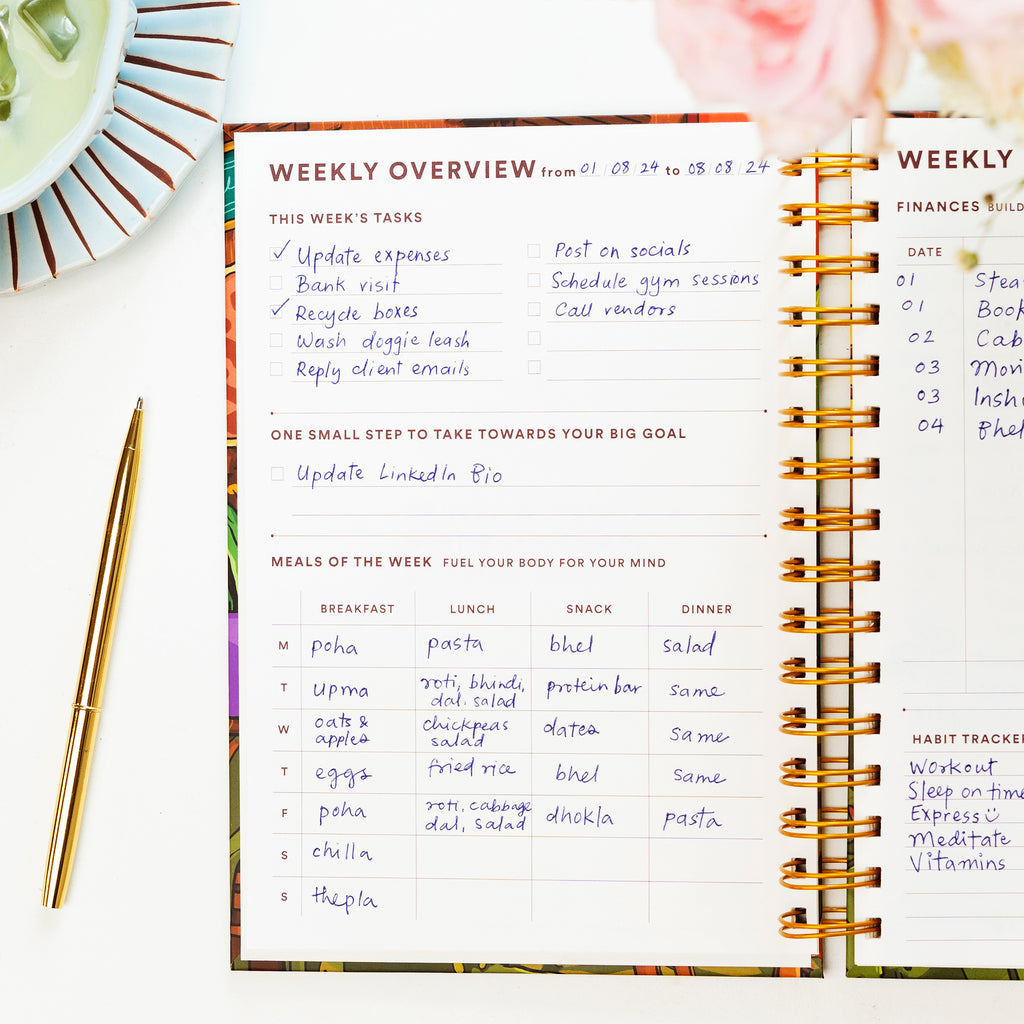 WEEKLY OVERVIEW from 01/08/24 to 08/08/24
THIS WEEK'S TASKS
Update expenses
Bank visit
Recycle boxes
Wash doggie leash
Reply client emails
Post on socials
Schedule gym sessions
Call vendors
ONE SMALL STEP TO TAKE TOWARDS YOUR BIG GOAL
Update LinkedIn Bio
MEALS OF THE WEEK FUEL YOUR BODY FOR YOUR MIND
BREAKFAST LUNCH SNACK DINNER
M poha pasta bhel salad
T upma roti, bhindi, protein bar same
dal, salad
W oats & chickpeas dates same
apples salad
T eggs fried rice bhel same
F poha roti, cabbage dhokla pasta
dal, salad
S chilla
S thepla
WEEKLY
FINANCES BUILD
DATE
01
01 Book
02 Cab
03
03
04
HABIT TRACKER
Workout
Sleep on time
Express
Meditate
Vitamins